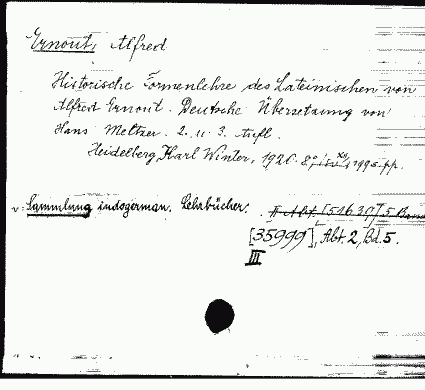 Ernout, Alfred
Historische Formenlehre des Lateinischen von
Alfred Ernout. Deutsche Übersetzung von
Hans Meltzer. 2. u. 3. Aufl.
Heidelberg, Karl Winter, 1920. 8°,
v: Sammlung indogerman. Lehrbücher. II Abt. [51639] 5 Band
[35999], Abt. 2, Bd. 5.
III